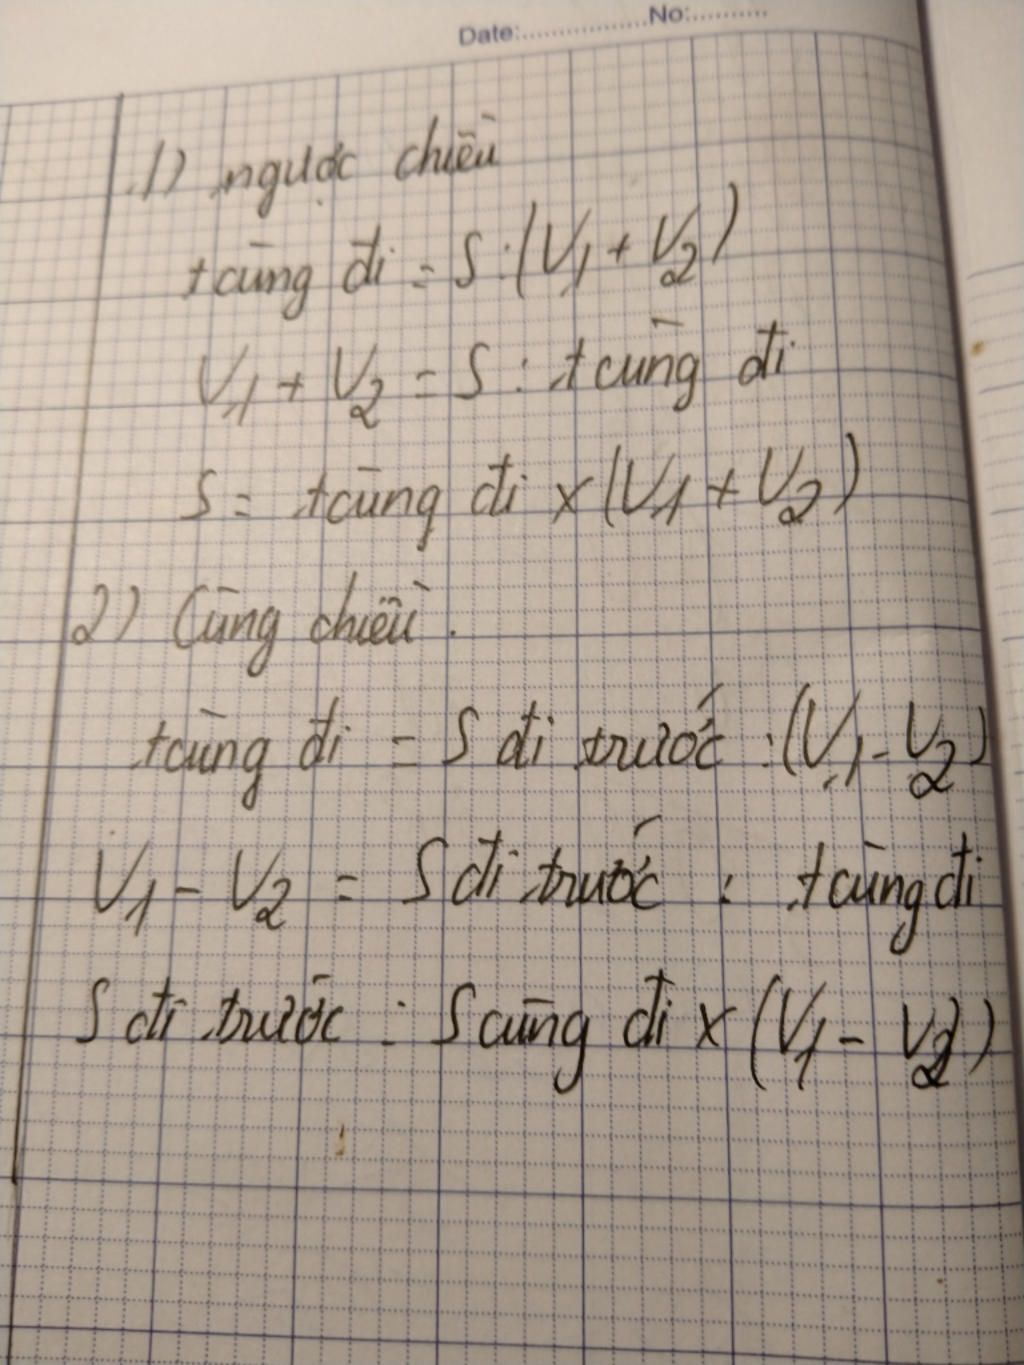 Date:....................No:...........
1) ngược chiều
t cùng đi = S : (V1 + V2)
V1 + V2 = S : t cùng đi
S = t cùng đi x (V1 + V2)
2) Cùng chiều.
t cùng đi = S đi trước : (V1 - V2)
V1 - V2 = S đi trước : t cùng đi
S đi trước = S cùng đi x (V1 - V2)